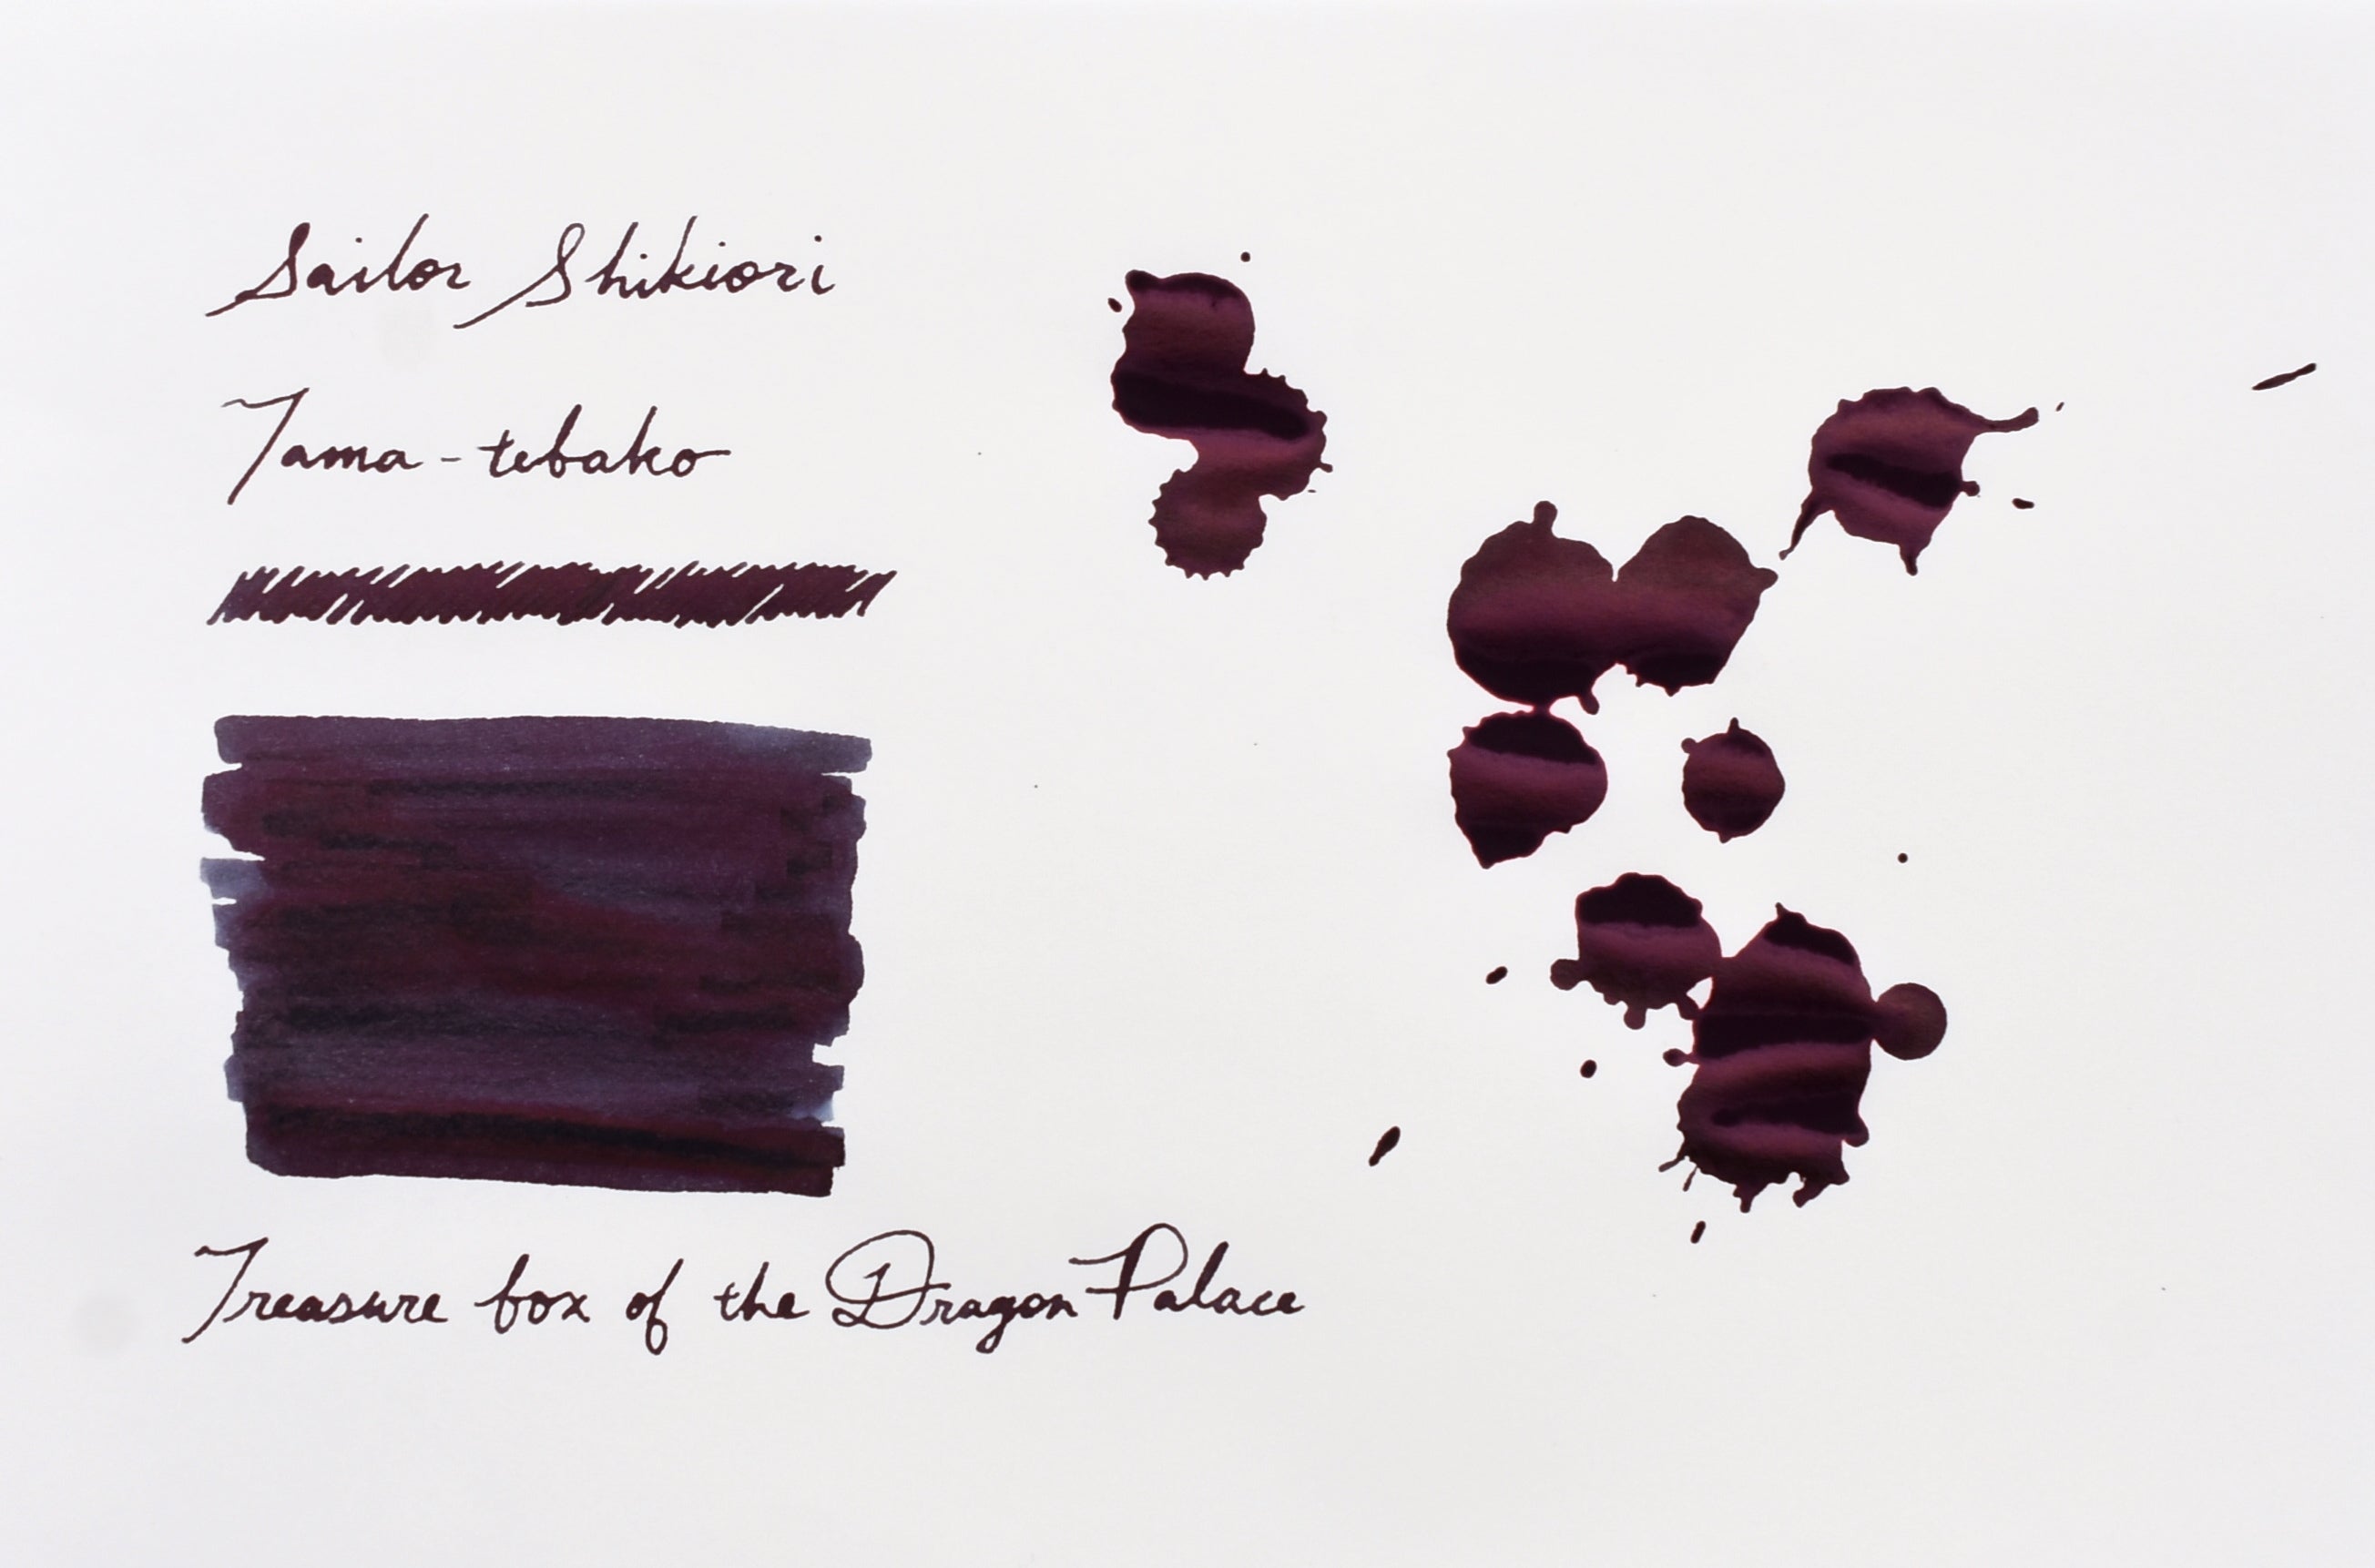 Sailor Shikiori
Tama-tebako
Treasure box of the Dragon Palace